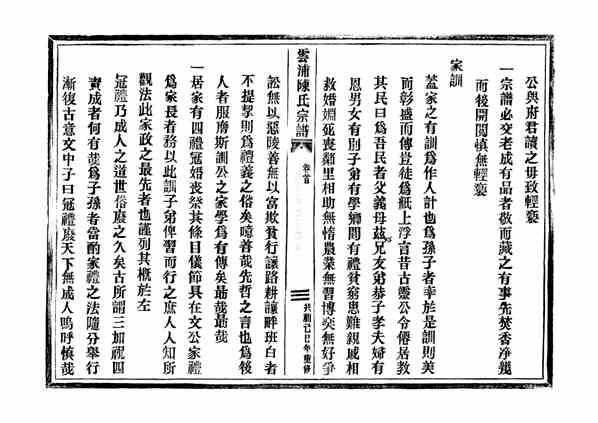 公與府君讀之毋致輕褻
一宗譜必交老成有品者敬而藏之有事先焚香净几
而後開閱慎無輕褻
家訓
蓋家之有訓爲作人計也爲孫子者幸於是訓則美
而彰盛而傳豈徒爲紙上浮言昔古靈公令僊居教
其民曰爲吾民者父義母慈兄友弟恭子孝夫婦有
恩男女有別子弟有學鄉閭有禮貧窮患難親戚相
救婚姻死喪鄰里相助無惰農業無習博奕無好爭
雲浦陳氏宗譜
卷首
共和己巳年重修
訟無以惡陵善無以富欺貧行讓路耕讓畔班白者
不提挈則爲禮義之俗矣噫善哉先哲之言也爲後
人者服膺斯訓公之家學爲有傳矣勗哉勗哉
一居家有四禮冠婚喪祭其條目儀節具在文公家禮
爲家長者務以此訓子弟俾習而行之庶人人知所
觀法此家政之最先者也謹列其概於左
冠禮乃成人之道世俗廢之久矣古所謂三加祝四
責成者何有哉爲子孫者當酌家禮之法隨分舉行
漸復古意文中子曰冠禮廢天下無成人嗚呼慎哉